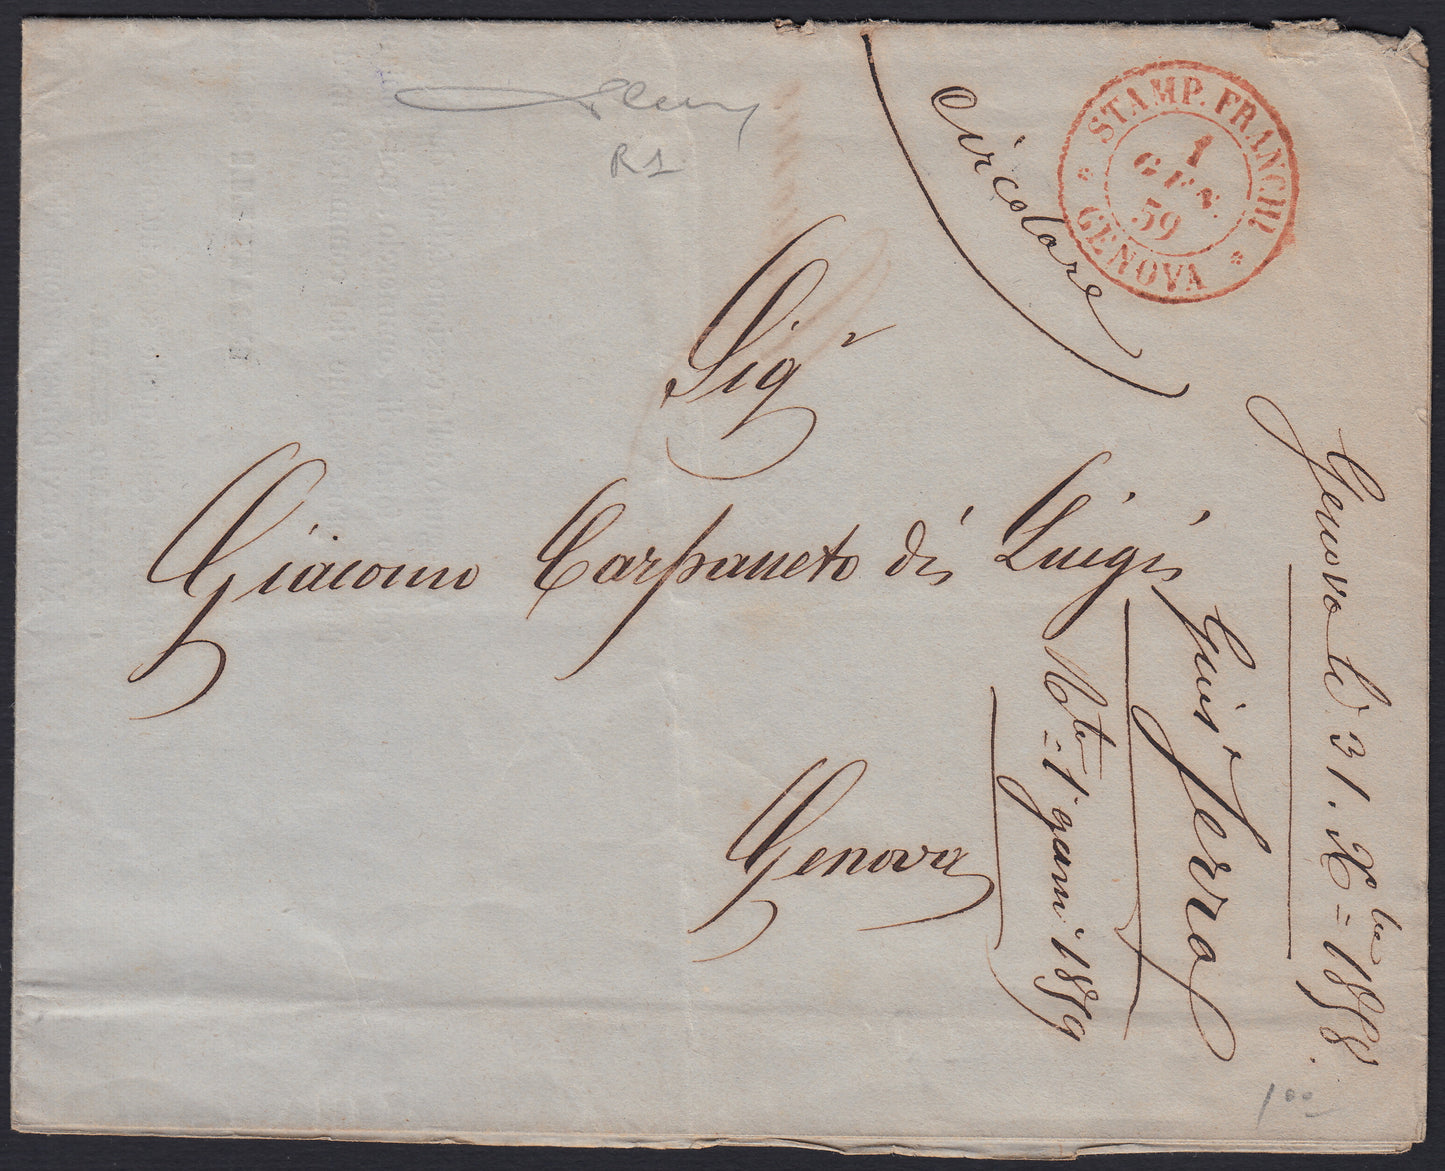 STAMP. FRANCHI
1
GEN.
59
* GENOVA *
Circolare
R1
Sigʳ
Giacomo Carpaneto di Luigi
Genova
Genova li 31. Xbre = 1858.
Serra
1° = genn° 1859
100